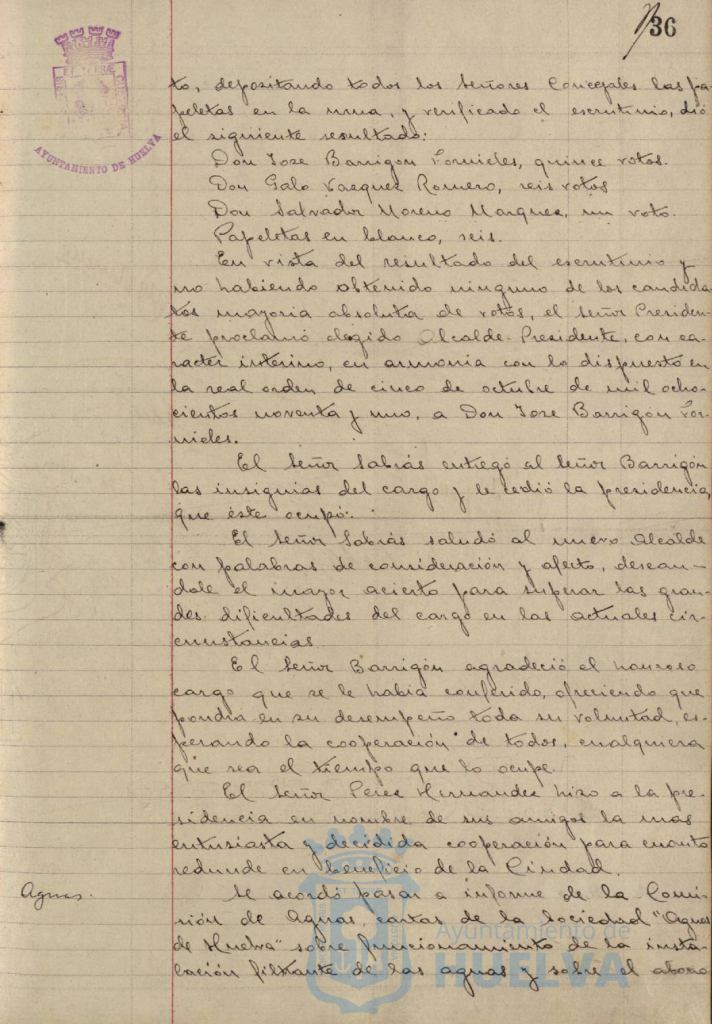 136
AYUNTAMIENTO DE HUELVA
to, depositando todos los Señores Concejales las pa-
peletas en la urna, y verificado el escrutinio, dió
el siguiente resultado:
Don Jose Barrigón Fornieles, quince votos.
Don Galo Vazquez Romero, seis votos
Don Salvador Moreno Marquez, un voto.
Papeletas en blanco, seis.
En vista del resultado del escrutinio y
no habiendo obtenido ninguno de los candida-
tos mayoria absoluta de votos, el Señor Presiden-
te proclamó elegido Alcalde-Presidente, con ca-
racter interino, en armonia con lo dispuesto en
la real orden de cinco de octubre de mil ocho-
cientos noventa y uno, a Don Jose Barrigón For-
nieles.
El Señor Sabrás entregó al Señor Barrigón
las insignias del cargo y le cedió la presidencia,
que éste ocupó.
El Señor Sabrás saludó al nuevo Alcalde
con palabras de consideración y afecto, desean-
dole el mayor acierto para superar las gran-
des dificultades del cargo en las actuales cir-
cunstancias
El Señor Barrigón agradeció el honroso
cargo que se le habia conferido, ofreciendo que
pondria en su desempeño toda su voluntad, es-
perando la cooperación de todos, cualquiera
que sea el tiempo que lo ocupe.
El Señor Perez Hernandez hizo a la pre-
sidencia en nombre de sus amigos la mas
entusiasta y decidida cooperación para cuanto
redunde en beneficio de la Ciudad.
Aguas.
Se acordó pasar a informe de la Comi-
sión de Aguas, cartas de la Sociedad "Aguas
de Huelva" sobre funcionamiento de la insta-
lación filtrante de las aguas y sobre el abono
Ayuntamiento de
HUELVA